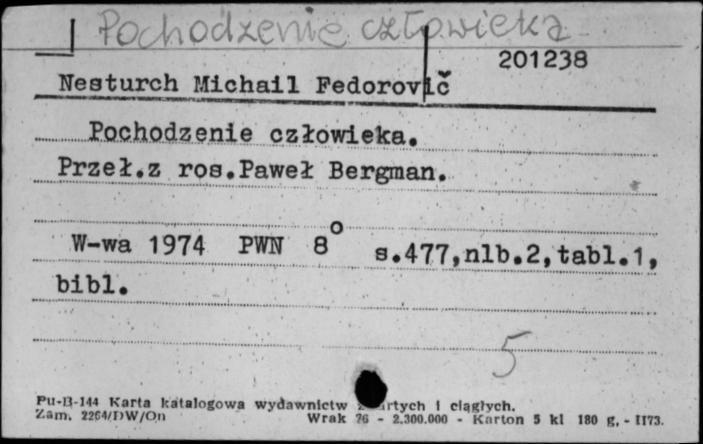 Pochodzenie człowieka
201238
Nesturch Michail Fedorovič
Pochodzenie człowieka.
Przeł.z ros.Paweł Bergman.
W-wa 1974 PWN 8° s.477,nlb.2,tabl.1,
bibl.
5
Pu-B-144 Karta katalogowa wydawnictw i ciągłych.
Zam. 2264/DW/On Wrak 76 - 2.300.000 - Karton 5 kl 180 g. - II73.